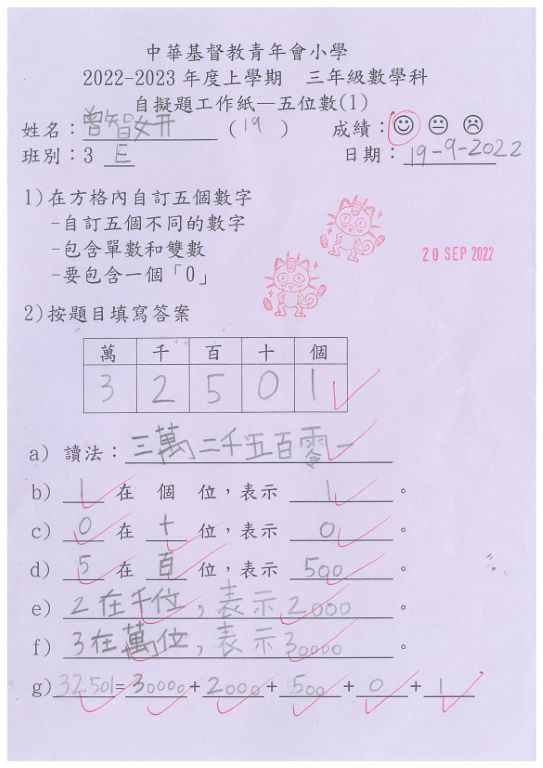 中華基督教青年會小學
2022-2023 年度上學期 三年級數學科
自擬題工作紙—五位數(1)
姓名：曾智妍 (19) 成績：
班別：3 E 日期：19-9-2022
1)在方格內自訂五個數字
-自訂五個不同的數字
-包含單數和雙數
-要包含一個「0」
20 SEP 2022
2)按題目填寫答案
萬 千 百 十 個
3 2 5 0 1
a) 讀法：三萬二千五百零一
b) 1 在 個 位，表示 1。
c) 0 在 十 位，表示 0。
d) 5 在 百 位，表示 500。
e) 2在千位，表示2000。
f) 3在萬位，表示30000。
g) 32501=30000+2000+500+0+1